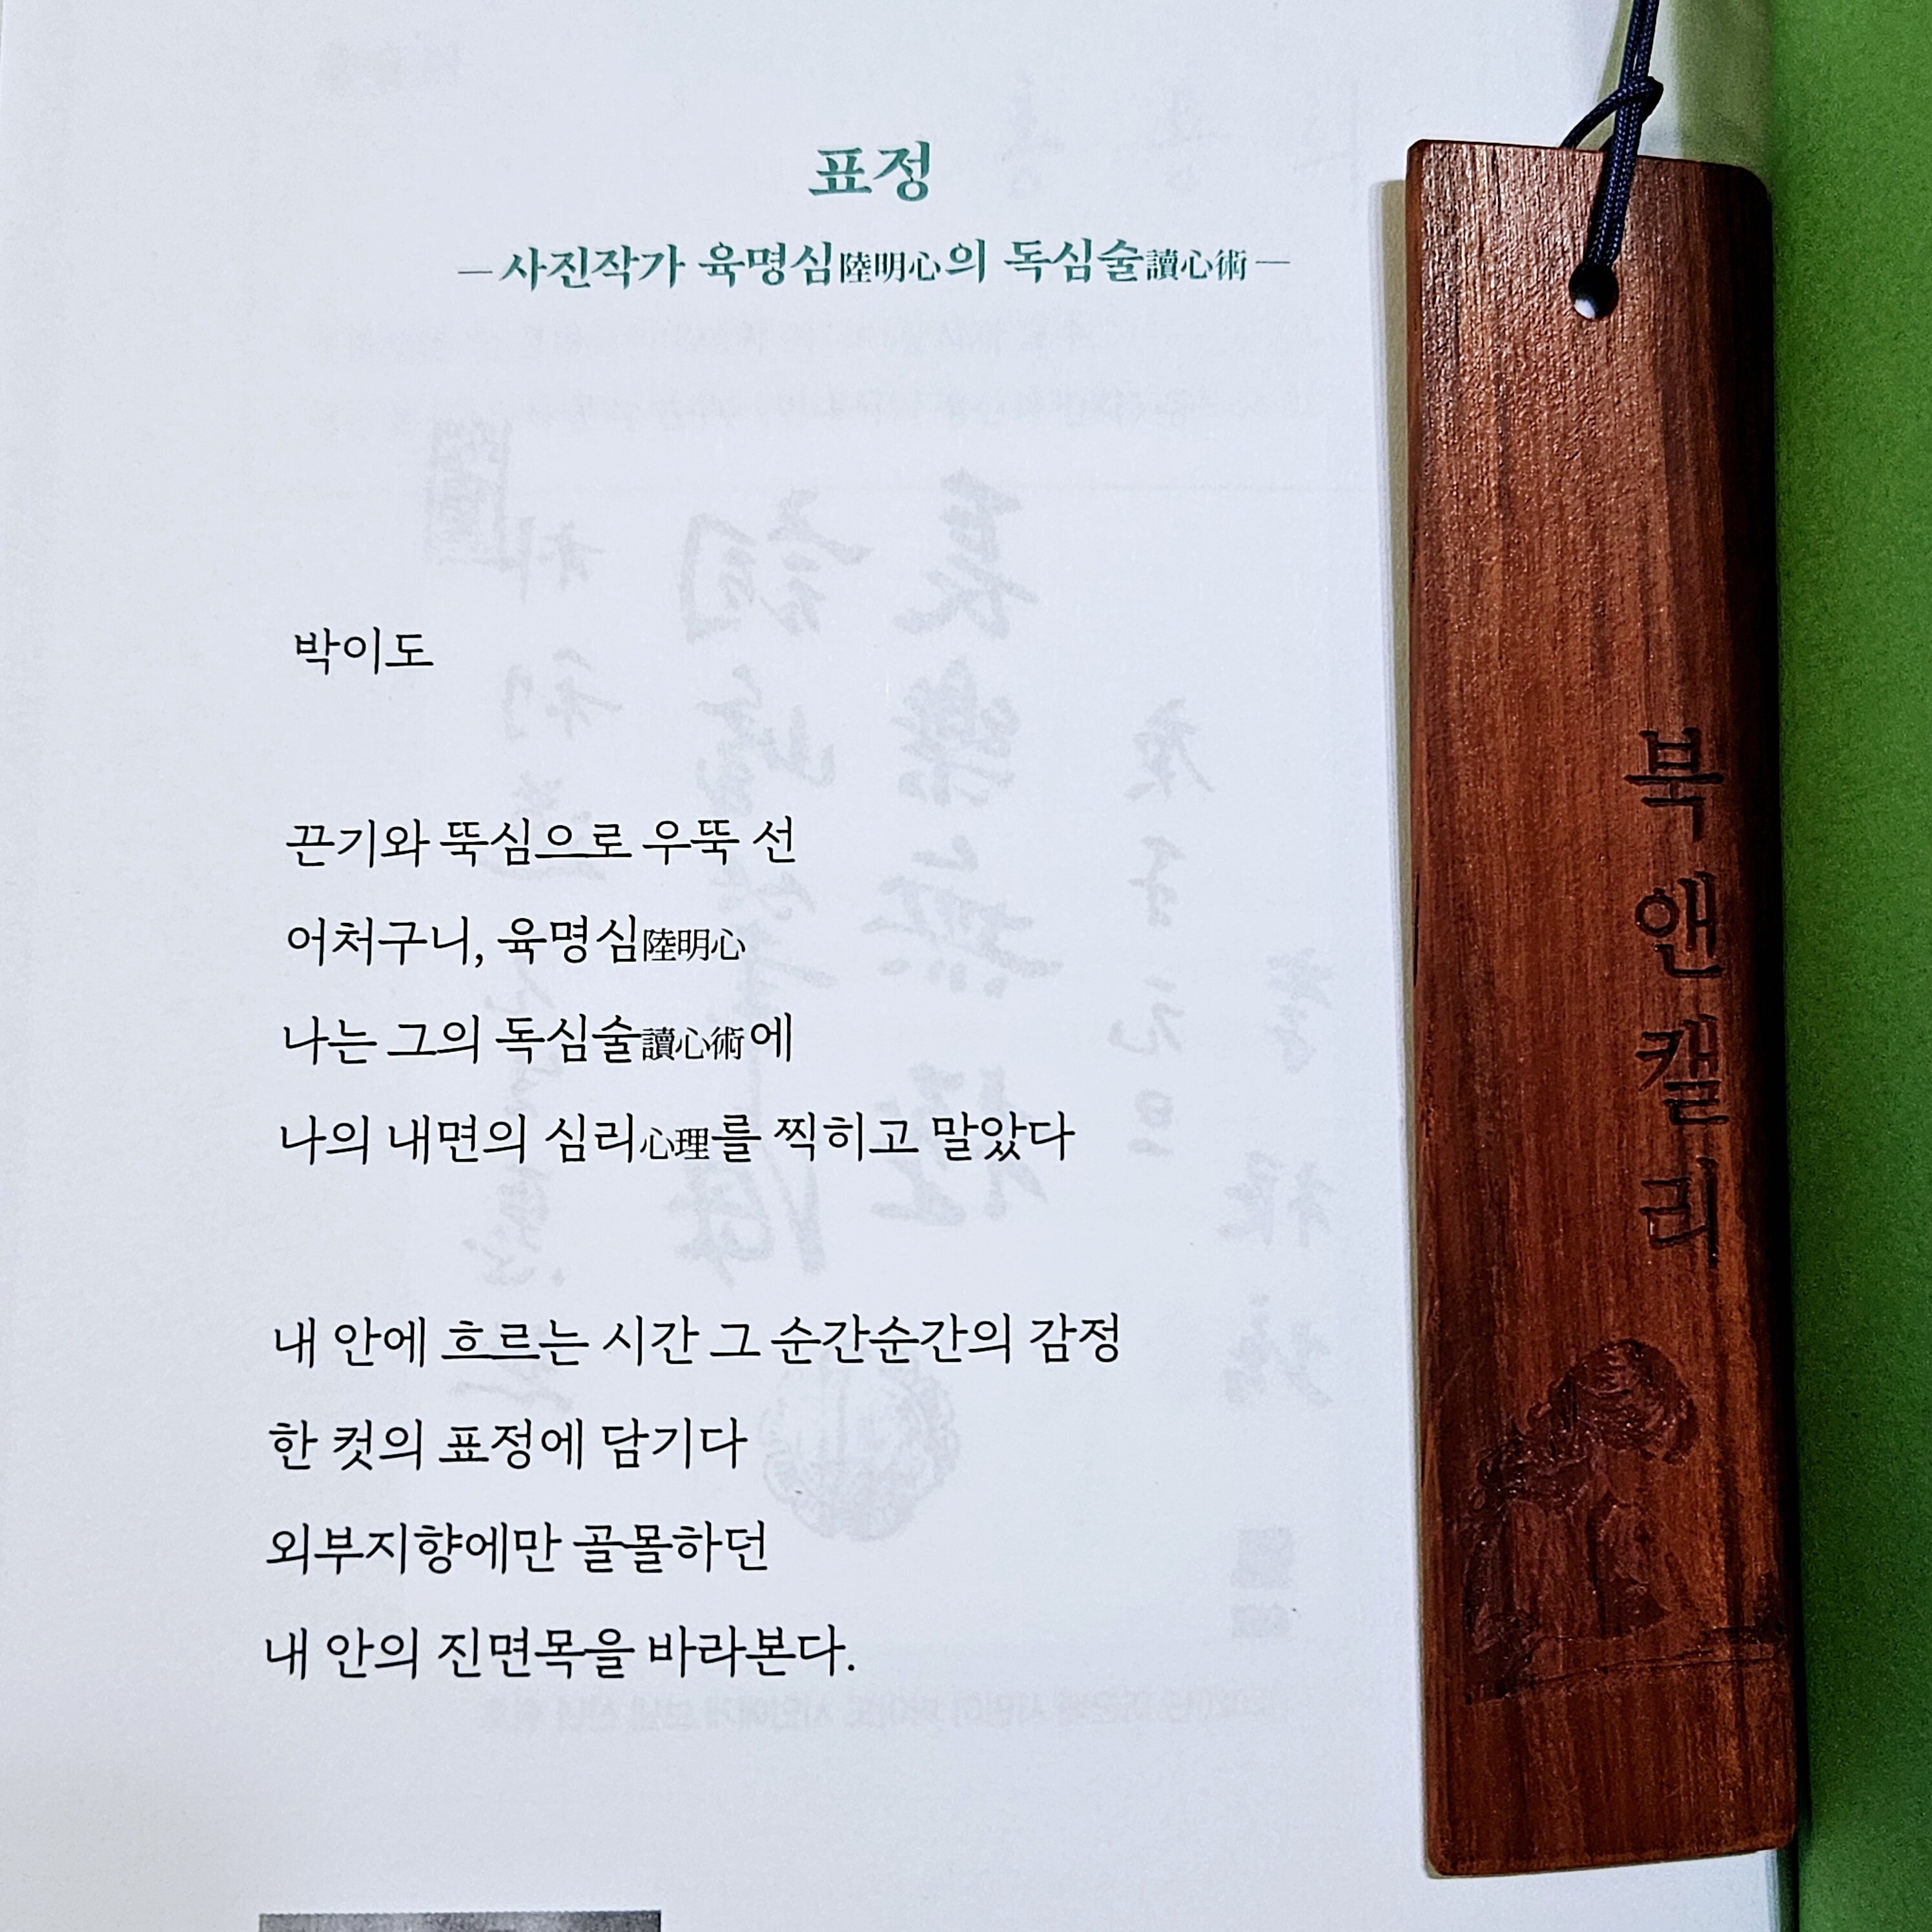 표정
—사진작가 육명심陸明心의 독심술讀心術—
박이도
끈기와 뚝심으로 우뚝 선
어처구니, 육명심陸明心
나는 그의 독심술讀心術에
나의 내면의 심리心理를 찍히고 말았다
내 안에 흐르는 시간 그 순간순간의 감정
한 컷의 표정에 담기다
외부지향에만 골몰하던
내 안의 진면목을 바라본다.
북앤캘리